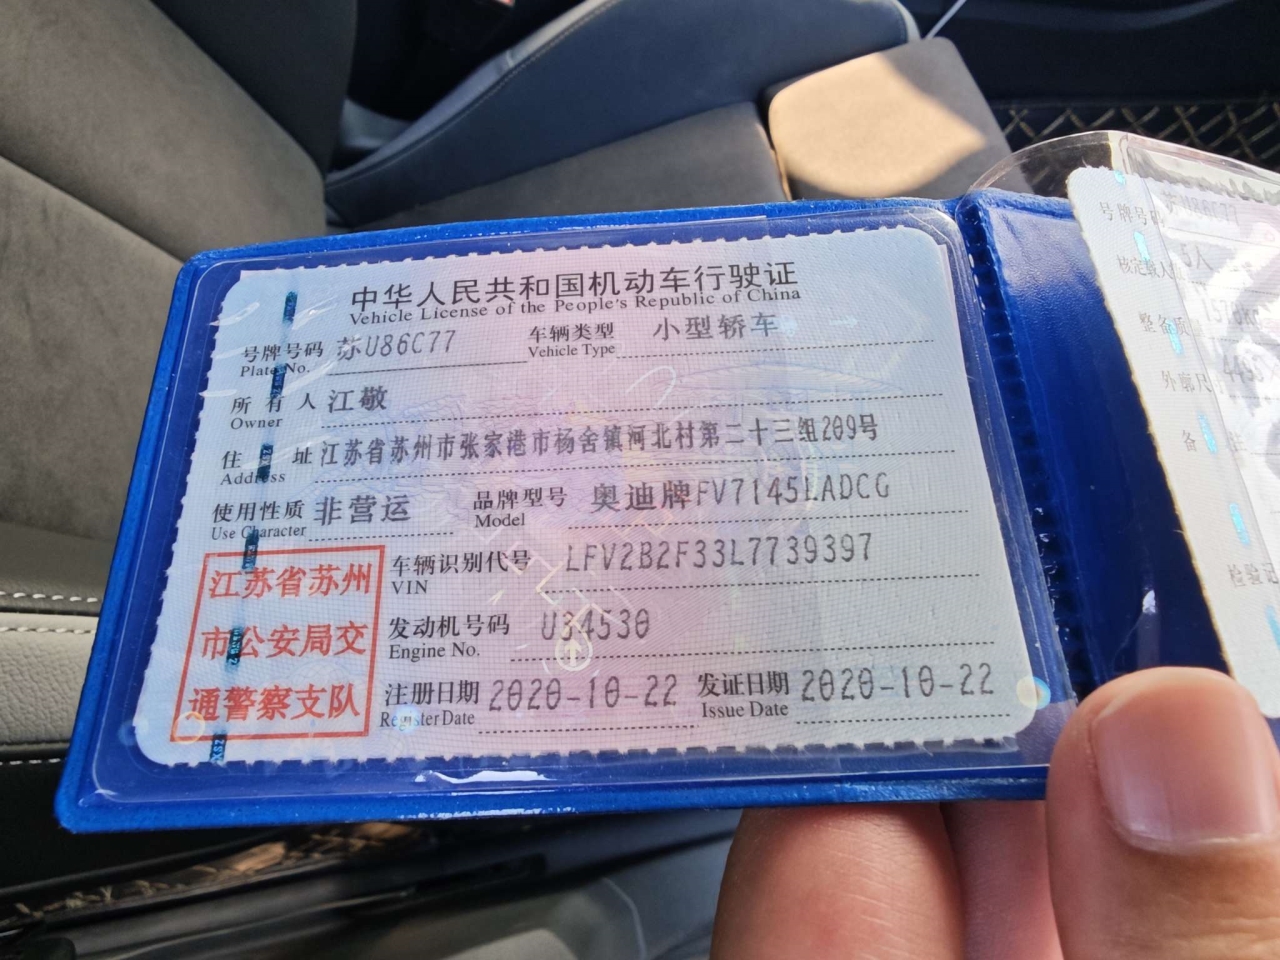 中华人民共和国机动车行驶证
Vehicle License of the People's Republic of China
号牌号码 苏U86C77 车辆类型 小型轿车
Plate No. Vehicle Type
所有人 江敬
Owner
住址 江苏省苏州市张家港市杨舍镇河北村第二十三组209号
Address
使用性质 非营运 品牌型号 奥迪牌FV7145LADCG
Use Character Model
车辆识别代号 LFV2B2F33L7739397
VIN
发动机号码 U34530
Engine No.
注册日期 2020-10-22 发证日期 2020-10-22
Register Date Issue Date
江苏省苏州
市公安局交
通警察支队
号牌号码 苏U86C77
核定载人 5人
整备质
外廓尺
备
检验记